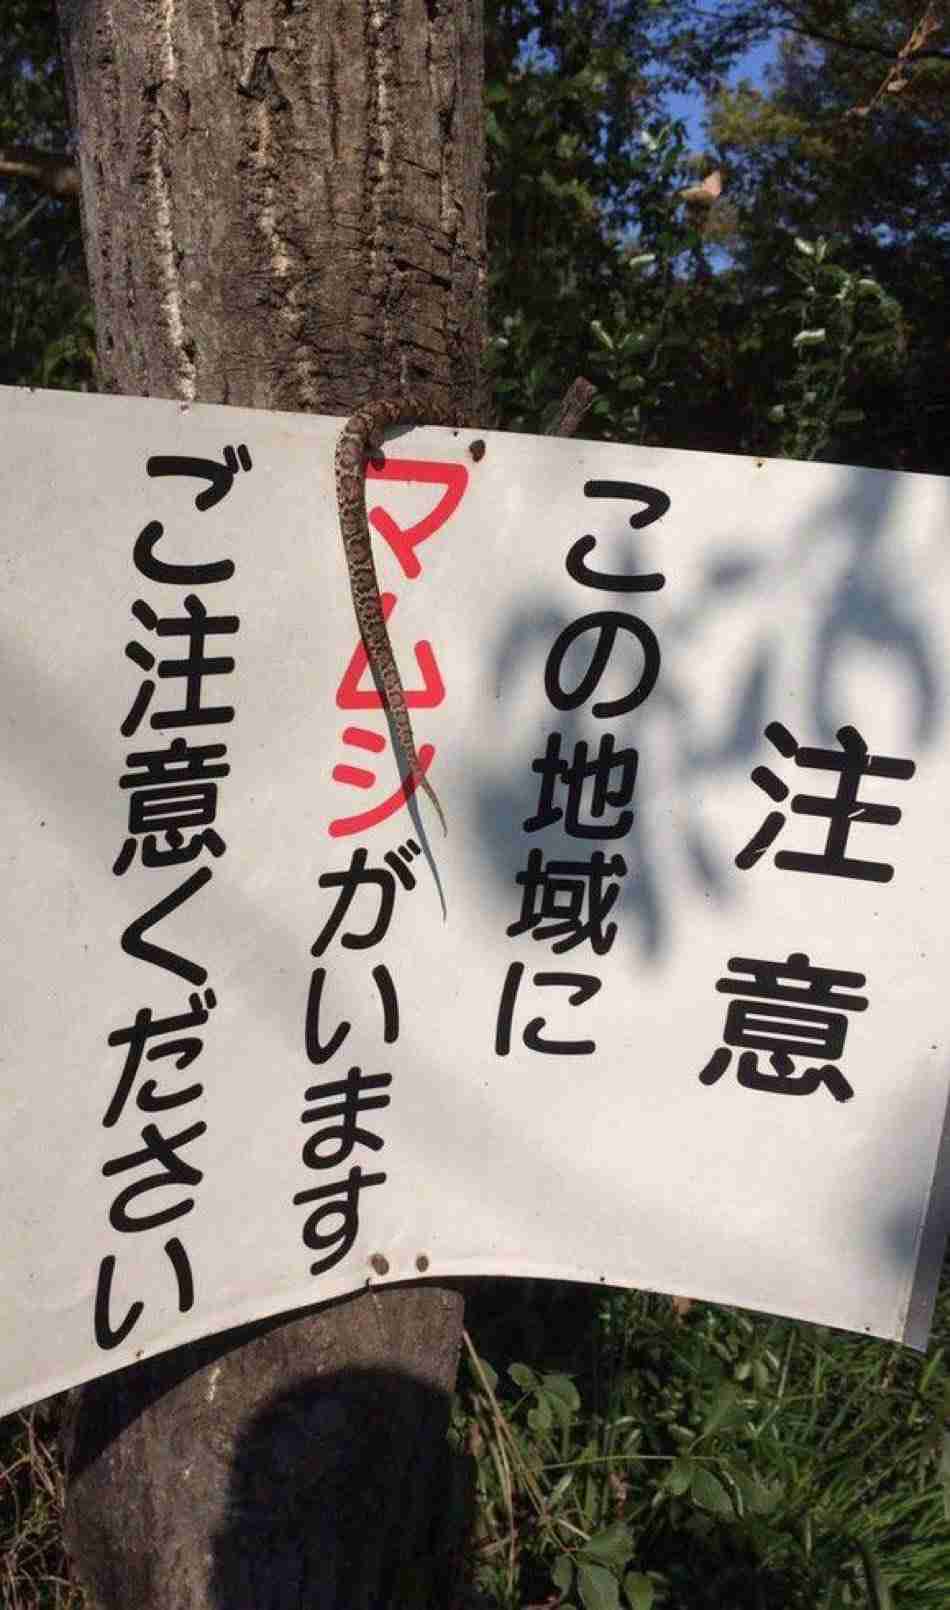 注意
この地域に
マムシがいます
ご注意ください